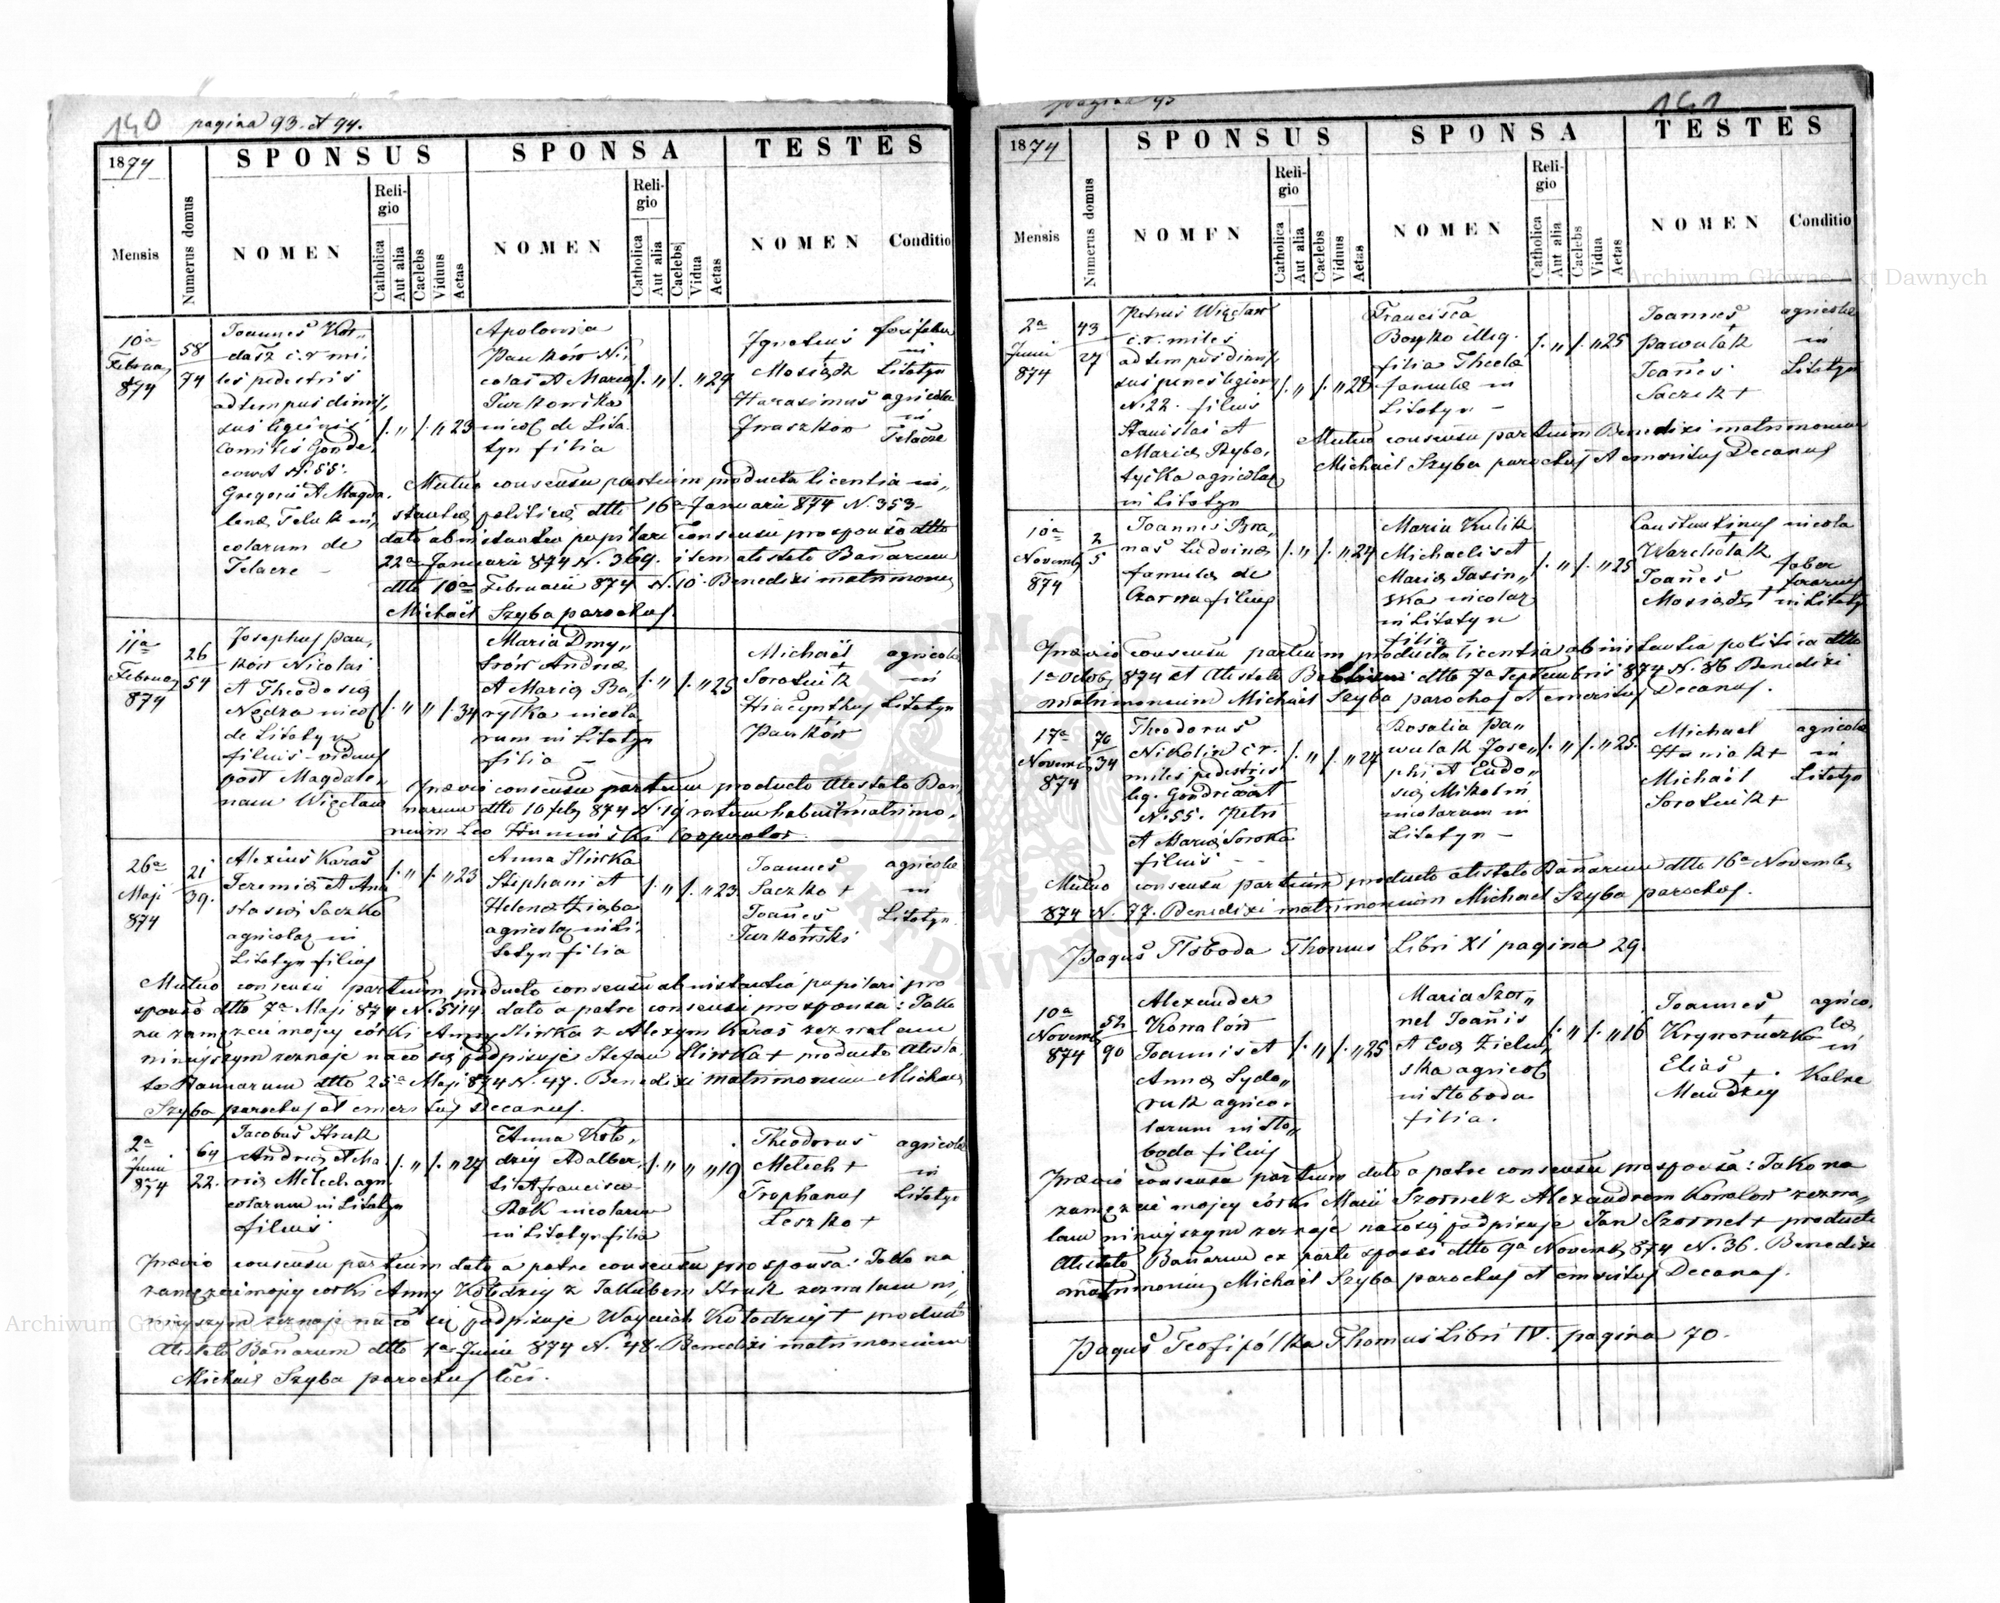 140 pagina 93. et 94.
1874
SPONSUS SPONSA TESTES
Mensis
Numerus domus
NOMEN
Religio
Catholica
Aut alia
Caelebs
Viduus
Aetas
NOMEN
Religio
Catholica
Aut alia
Caelebs
Vidua
Aetas
NOMEN Conditio
10a
Februar
874
58
74
Joannes Kor„
dasz c. r. mi„
les pedestris
ad tempus dimis„
sus legionis
Comitis Gonde„
court N. 55.
Gregorii et Magda„
lenae Teluk in„
colarum de
Telacze
23
Apolonia
Pańków Ni„
colai et Maria
Turkowska
incol de Lita„
tyn filia
29
Ignatius
Mosiądz
Harasimus
Iwaszków
in
Litatyn
agricolae
in
Mutuo consensu partium producta licentia in„
stantiae politicae dtto 16a Januarii 874 N. 353
dato ab instantia pupilari consensu pro sponso dtto
22a Januarii 874 N. 369. item atestato Banarum
dtto 10a Februarii 874 N. 10. Benedixi matrimoniu
Michaël Szyba parochus.
11a
Februar
874
26
54
Josephus Pań„
ków Nicolai
et Theodosia
Nędza incol
de Litatyn
filius viduus
post Magdale„
nam Więcław
34
Maria Dmy„
trów Andreae
et Maria Ba„
rytka incola„
rum in Litatyn
filia
25
Michaël
Sorotiuk
Hiacynthus
Pańków
agricolae
in
Litatyn
Praevio consensu partium producto atestato Ban„
narum dtto 10 feb 874 N. 19 ratum habuit matrimo„
nium Leo Humiński Cooperator.
26a
Maji
874
21
39.
Alexius Karaś
Jeremiae et Ana
stasiae Saczko
agricolar in
Litatyn filius
23
Anna Sliwka
Stephani et
Helena Ziąba
agricolar in Li„
tatyn filia
23
Joannes
Saczko +
Joannes
Turkowski
agricolae
in
Litatyn
Mutuo consensu partium producto consensu ab instantia pupilari pro
sponso dtto 7a Maji 874 N. 5114, dato a patre consensu pro sponsa: Jako
na zamęzcie mojey córki Anny Sliwka z Alexym Karaś zezwalam
ninieyszym zeznaje na co się podpisuje Stefan Sliwka + producto atesta„
to Bannarum dtto 25a Maji 874 N. 47. Benedixi matrimonium Michael
Szyba parochus et emeritus Decanus.
2a
Junii
874
64
22.
Jacobus Struk
Andreae et Ma„
riae Melech agri
colarum in Litatyn
filius
27
Anna Koło„
dziey Adalber„
ti et Francisca
Rak incolarum
in Litatyn filia
19
Theodorus
Melech +
Trophanus
Leszko +
agricolae
in
Litatyn
Praevio consensu partium dato a patre consensu pro sponsa: Jako na
zamęzcie mojey corki Anny Kołodziey z Jakubem Struk zezwalam ni„
nieyszym zeznaje na co się podpisuje Woyciech Kołodziey + producto
atestato Banarum dtto 1a Junii 874 N. 48. Benedixi matrimonium
Michaël Szyba parochus loci.
pagina 95 141
1874
SPONSUS SPONSA TESTES
Mensis
Numerus domus
NOMEN
Religio
Catholica
Aut alia
Caelebs
Viduus
Aetas
NOMEN
Religio
Catholica
Aut alia
Caelebs
Vidua
Aetas
NOMEN Conditio
2a
Junii
874
43
27
Petrus Więcław
c. r. miles
ad tempus dimis
sus penes legionem
N. 22. filius
Stanislai et
Maria Rybo„
tyćka agricolar
in Litatyn
28
Francisca
Boyko illeg.
filia Thecla
famula in
Litatyn
25
Joannes
Pawulak
Joannes
Saczek +
agricolae
in
Litatyn
Mutuo consensu partium Benedixi matrimonium
Michaël Szyba parochus et emeritus Decanus
10a
Novemb
874
2
5
Joannes Bra„
naś Ludovina
famula de
Czarna filius
24
Maria Kulik
Michaelis et
Maria Jasin„
ska incolar
in Litatyn
filia
25
Constantinus
Warchotak
Joannes
Mosiądz +
incola
faber
ferarius
in Litatyn
Praevio consensu partium producta licentia ab instantia politica dtto
1a Octob 874 et atestato Banarum dtto 7a Septembris 874 N. 86 Benedixi
matrimonium Michaël Szyba parochus et emeritus Decanus.
17a
Novemb
874
70
34
Theodorus
Nikolin c. r.
miles pedestris
leg. Gondrécourt
N. 55. Petri
et Maria Soroka
filius
27
Rosalia Pa„
wulak Jose„
phi et Eudo„
sia Mikolin
incolarum in
Litatyn
25.
Michael
Huniak +
Michaël
Sorotiuk +
agricolae
in
Litatyn
Mutuo consensu partium producto atestato Banarum dtto 16a Novemb
874 N. 77. Benedixi matrimonium Michael Szyba parochus.
Pagus Sloboda Thomus Libri XI pagina 29.
10a
Novemb
874
52
90
Alexander
Kowalów
Joannis et
Anna Sydo„
ruk agrico„
larum in Slo„
boda filius
25
Maria Szor„
nel Joannis
et Eva Zielin„
ska agricol
in Sloboda
filia.
16
Joannes
Kryworuczko
Elias
Mandziy
agrico„
lae
in
Kalne
Praevio consensu partium dato a patre consensu pro sponsa: Jako na
zamęzcie mojey córki Maryi Szornel z Alexandrem Kowalow zezwa„
lam ninieyszym zeznaje na co się podpisuje Jan Szornel + producto
atestato Banarum ex parte sponsi dtto 9a Novemb 874 N. 36. Benedixi
matrimonium Michaël Szyba parochus et emeritus Decanus.
Pagus Teofipólka Thomus Libri IV. pagina 70.
Archiwum Główne Akt Dawnych